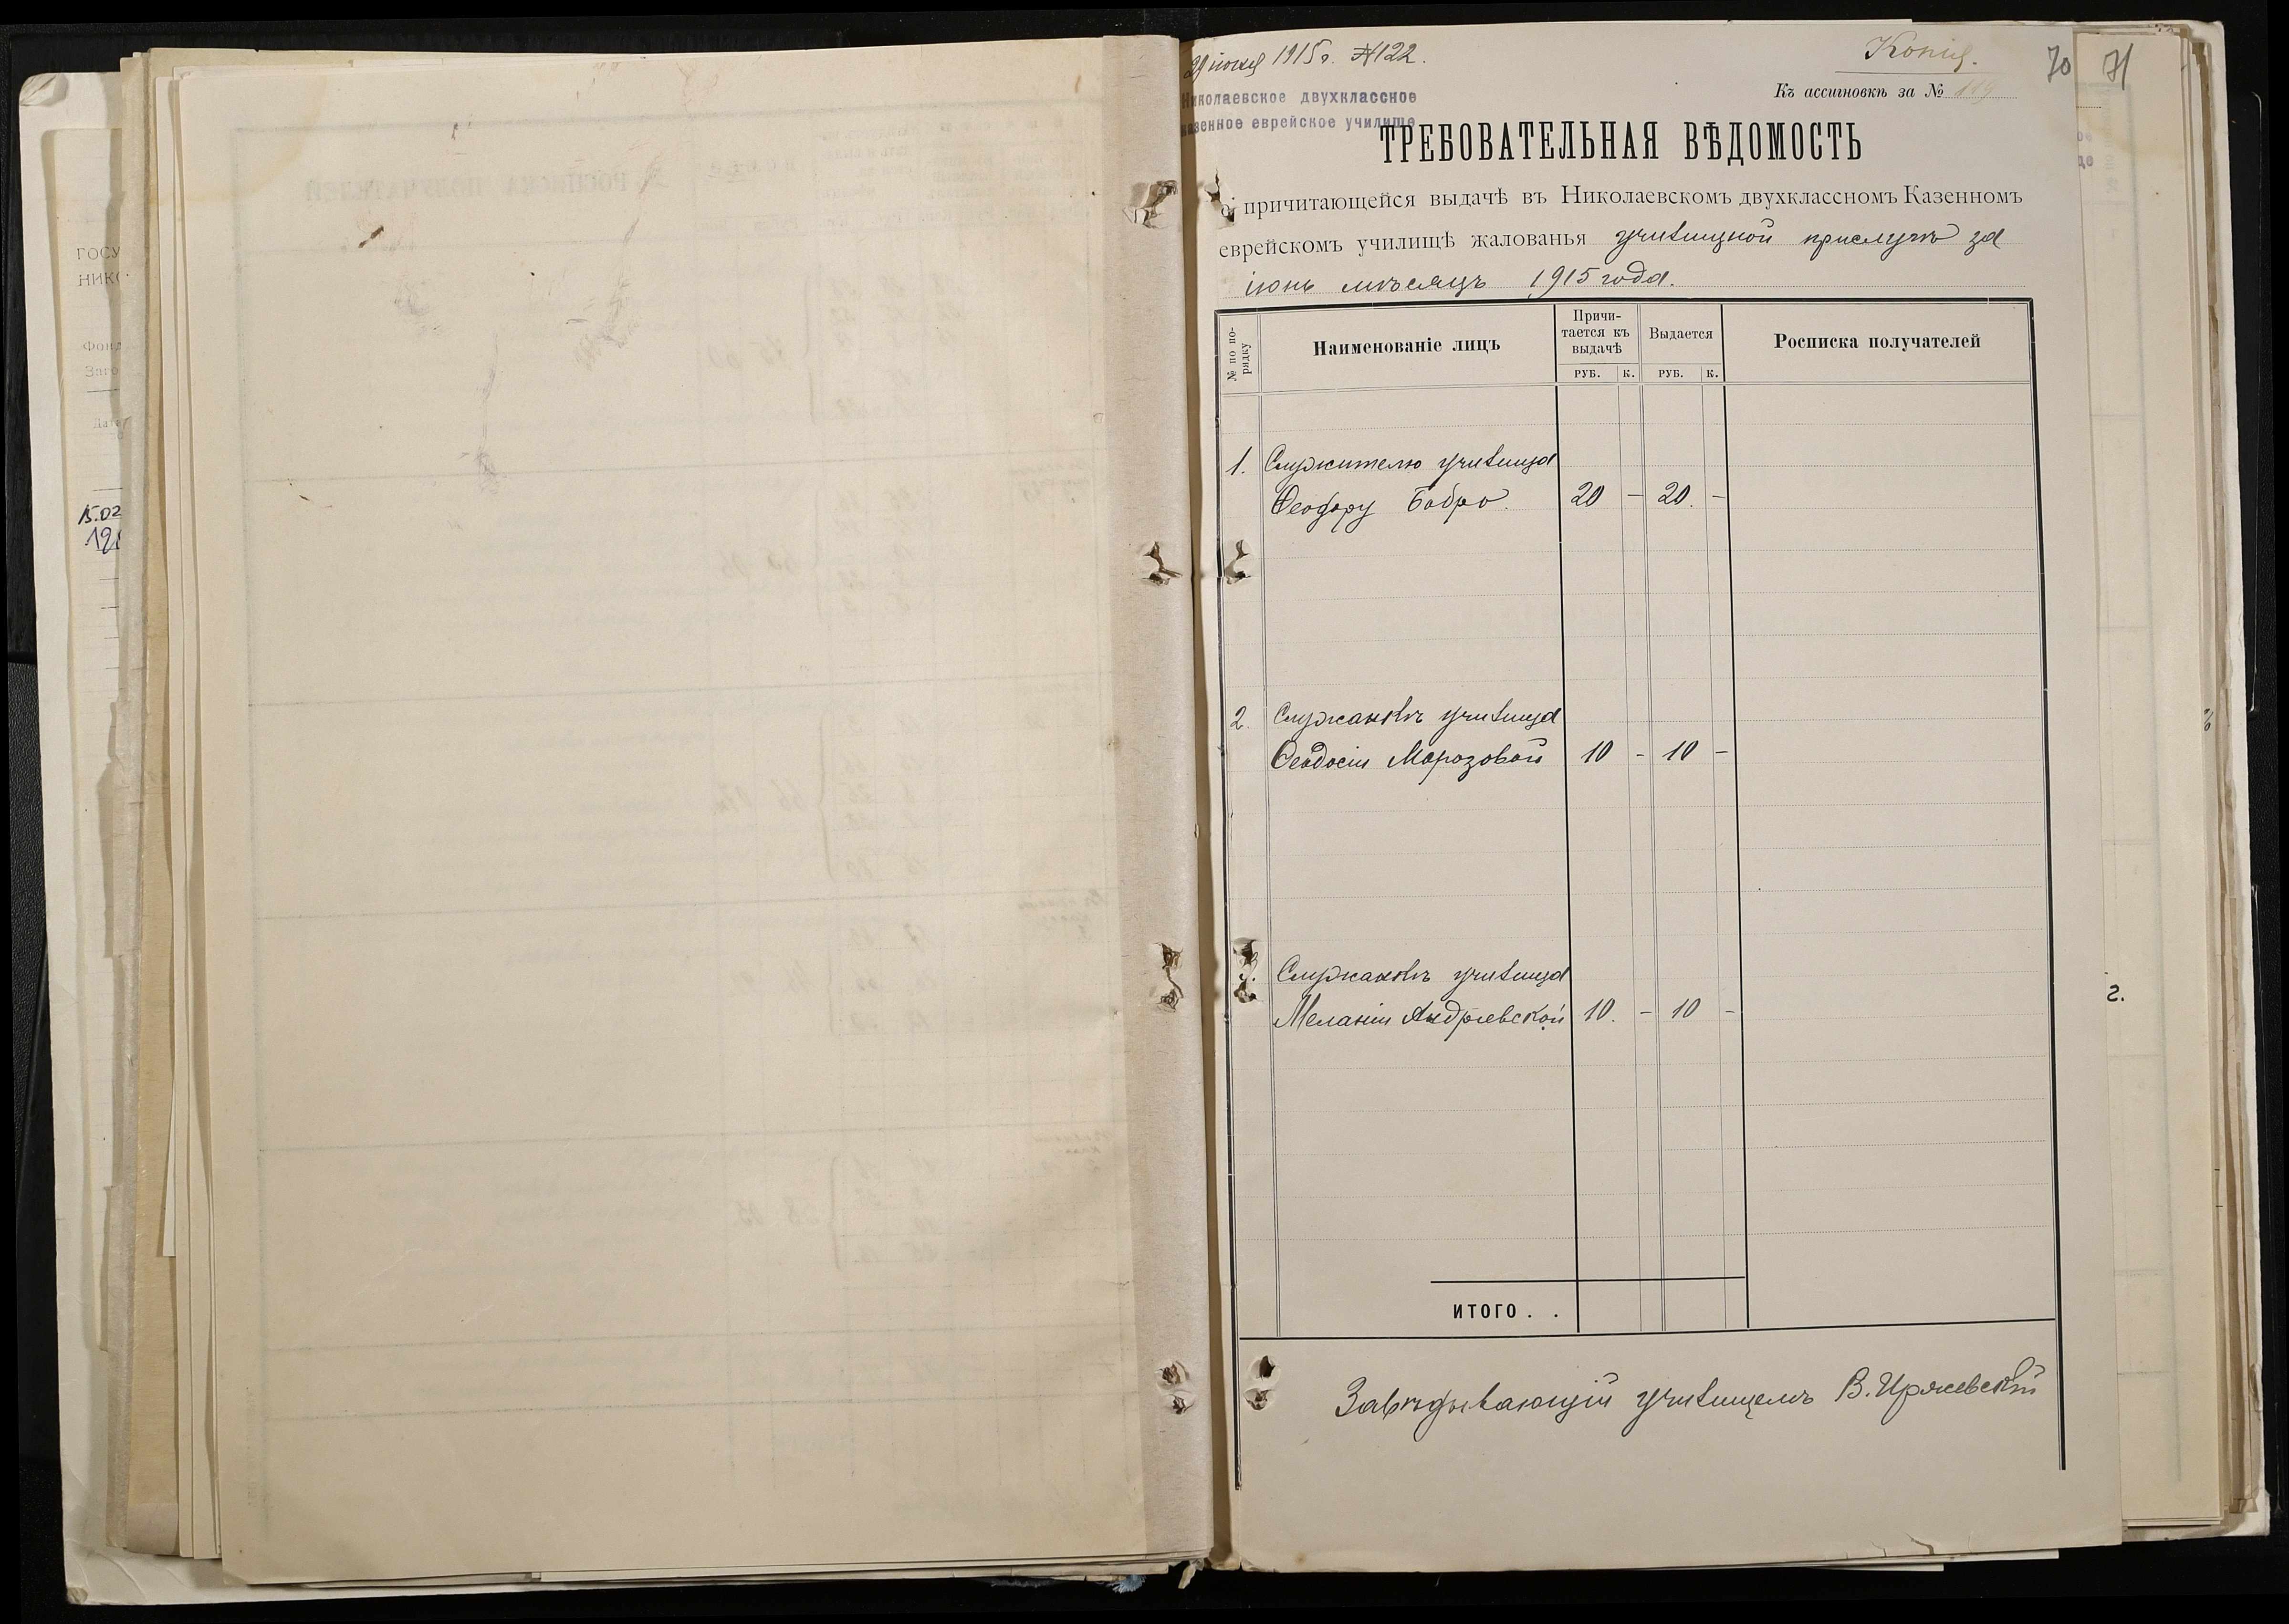 ГОСУ
НИКО
Фонд
15.02
29 іюня 1915 г. №122.
Копія.
70
71
Николаевское двухклассное
казенное еврейское училище
Къ ассигновкѣ за № 119
ТРЕБОВАТЕЛЬНАЯ ВѢДОМОСТЬ
о причитающейся выдачѣ въ Николаевскомъ двухклассномъ Казенномъ
еврейскомъ училищѣ жалованья училищной прислугѣ за
іюнь мѣсяцъ 1915 года.
№ по по-
рядку
Наименованіе лицъ
Причи-
тается къ
выдачѣ
Выдается
Росписка получателей
РУБ. К. РУБ. К.
1. Служителю училища
Ѳеодору Бобро. 20 – 20. –
2. Служанкѣ училища
Ѳеодосіи Морозовой 10 – 10 –
3. Служанкѣ училища
Меланіи Андріевской 10. – 10 –
г.
ИТОГО . .
Завѣдывающій училищемъ В. Иржевскій